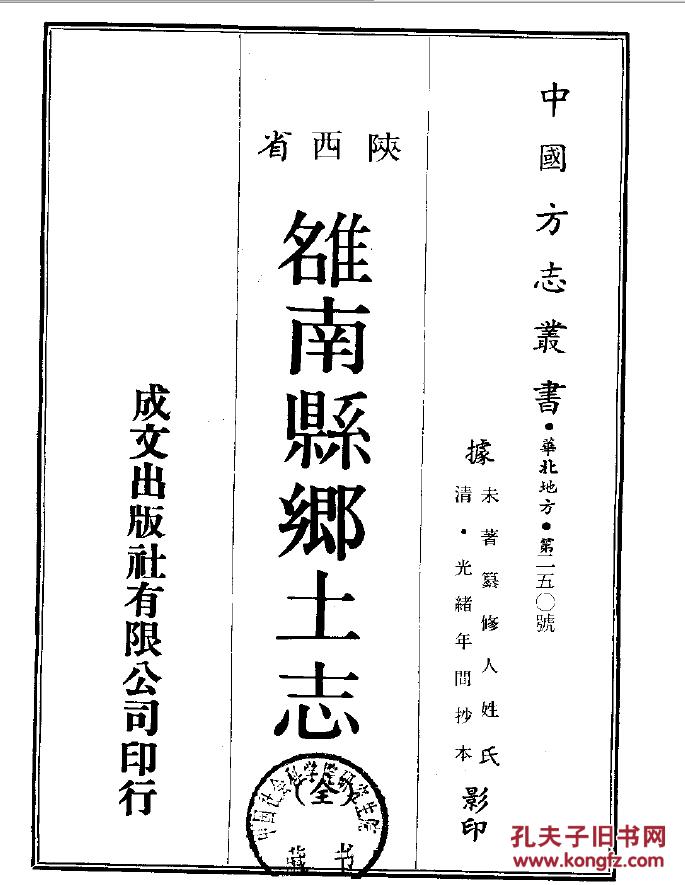 中國方志叢書·華北地方·第二五〇號
據
未著纂修人姓氏
清·光緒年間抄本
影印
陝西省
雒南縣鄉土志
(全)
中国社会科学院研究生院
藏书
成文出版社有限公司印行
孔夫子旧书网
www.kongfz.com